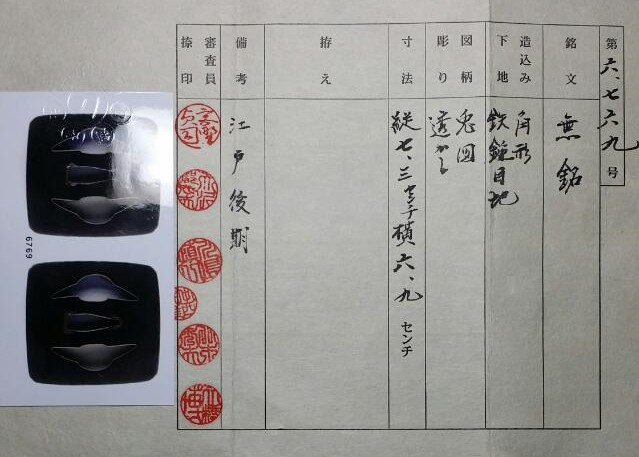 第六、七六九号
銘文 無銘
造込み 角形
下地 鉄鎚目地
図柄 兎図
彫り 透かし
寸法 縦七、三センチ横六、九センチ
拵え
備考 江戸後期
審査員
捺印
6769